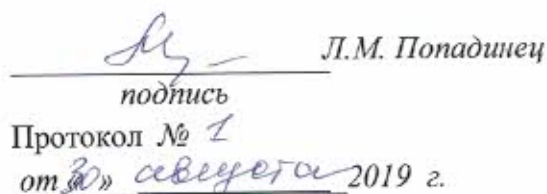 Л.М. Попадинец
подпись
Протокол № 1
от «30» августа 2019 г.